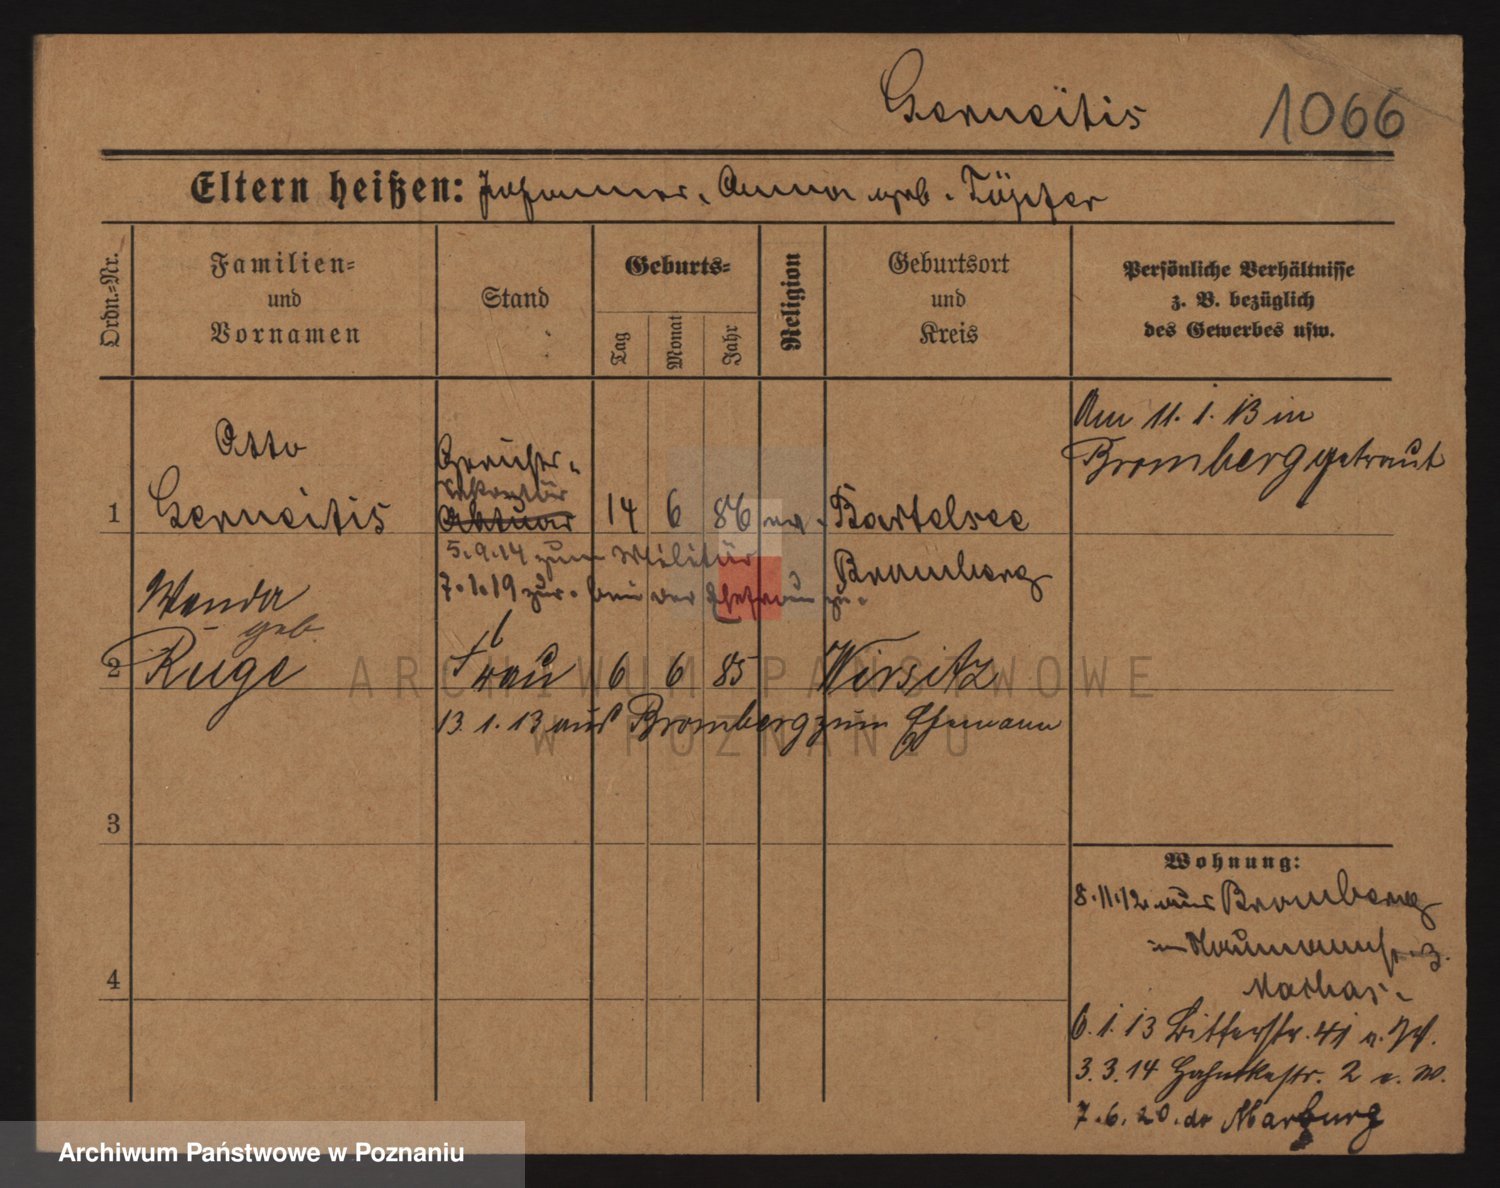 Gerneitis 1066
Eltern heißen: Johannes, Anna geb. Töpfer
Ordn.=Nr.
Familien=
und
Vornamen
Stand
Geburts=
Tag
Monat
Jahr
Religion
Geburtsort
und
Kreis
Persönliche Verhältnisse
z. B. bezüglich
des Gewerbes usw.
Am 11. 1. 13 in
Bromberg getraut
Otto
1 Gerneitis Aktuar 14 6 86 ev. Bartelsee
Bromberg
5.9.14 zum Militär
7.1.19 zur. bei der Ehefrau zu.
Wanda
geb.
2 Ruge Frau 6 6 85 Wirsitz
13. 1. 13 aus Bromberg zum Ehemann
3
4
Wohnung:
8.11.12 aus Bromberg
Naumannstr. 3.
6. 1. 13 Bitterstr. 41 e. W.
3. 3. 14 Hahnkestr. 2 e. W.
7. 6. 20. Marburg
ARCHIWUM PAŃSTWOWE
W POZNANIU
Archiwum Państwowe w Poznaniu